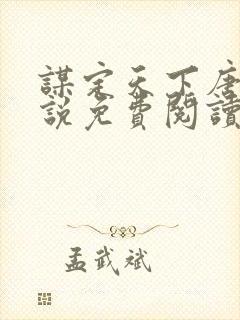 謀定天下唐
說免費閱讀
孟武斌